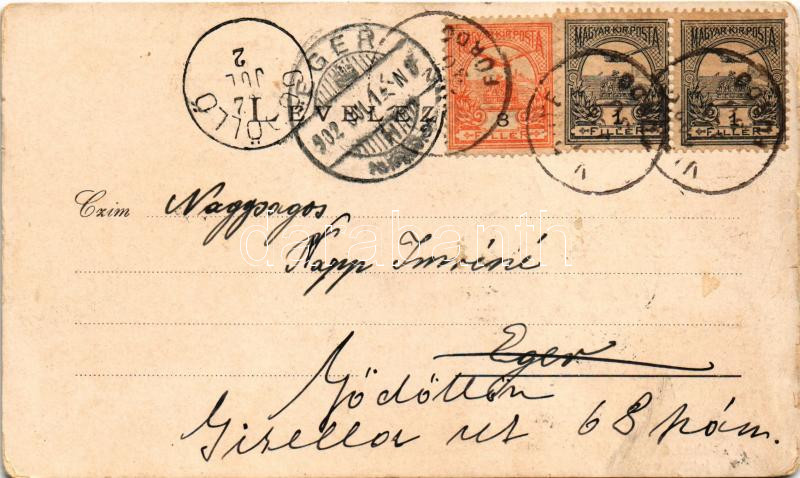 GÖDÖLLŐ
JUL
2
EGER
902
LEVELEZ
MAGYAR·KIR·POSTA
8
FILLÉR
MAGYAR·KIR·POSTA
1
FILLÉR
MAGYAR·KIR·POSTA
1
FILLÉR
FÜRDŐ
Czim Nagysagos
Papp Imréné
darabanth
Eger
Gödöllőn
Gizella ut 68 szám.